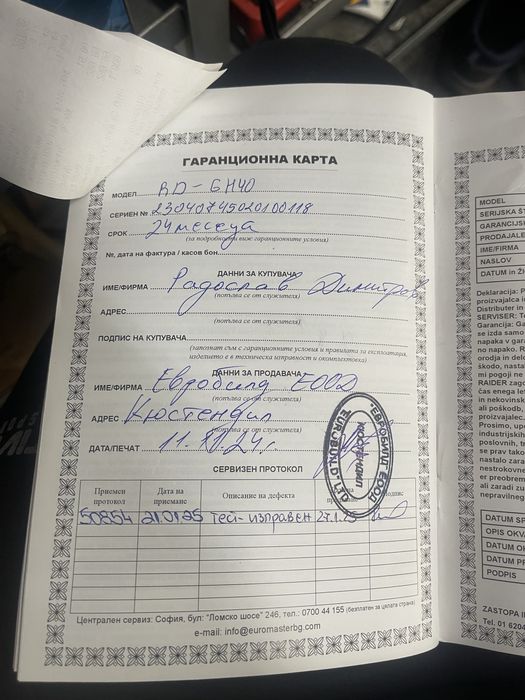 ГАРАНЦИОННА КАРТА
МОДЕЛ RD-GH40
СЕРИЕН № 23040745020100118
СРОК 24 месеца
(за подробности виж гаранционните условия)
№, дата на фактура / касов бон
ДАННИ ЗА КУПУВАЧА
ИМЕ/ФИРМА Радослав Димитров
(попълва се от служителя)
АДРЕС
(попълва се от служителя)
ПОДПИС НА КУПУВАЧА
(запознат съм с гаранционните условия и правилата за експлоатация,
изделието е в техническа изправност и окомплектовка)
ДАННИ ЗА ПРОДАВАЧА
ИМЕ/ФИРМА Евробилд ЕООД
(попълва се от служителя)
АДРЕС Кюстендил
(попълва се от служителя)
ДАТА/ПЕЧАТ 24г.
"ЕВРОБИЛД" ЕООД
КЮСТЕНДИЛ
EUROBUILD LTD.
СЕРВИЗЕН ПРОТОКОЛ
Приемен протокол
Дата на приемане
Описание на дефекта
50854 21.01.25 Тест-изправен 27.1.25
Централен сервиз: София, бул: "Ломско шосе" 246, тел.: 0700 44 155 (безплатен за цялата страна)
e-mail: info@euromasterbg.com
MODEL
SERIJSKA ŠT
GARANCIJSK
PRODAJALE
IME/FIRMA
NASLOV
DATUM in Ž
Deklaracija: P
proizvajalca
Distributer in
SERVISER: To
Garancija: Ga
se izda samo
napaka v gara
no napako. R
orodja in dele
škodo, nasta
mi pogoji ne
RAIDER zago
čas enega let
in nekovinsk
ali poškodb
proizvajalec.
Prosimo, upo
industrijskih
poslovnih, tr
se prav tako
nastalo zara
nestrokovne
er preobrem
ali zaradi zu
nepravilneg
DATUM S
OPIS OKV
DATUM O
DATUM P
PODPIS
ZASTOPA I
Tel. 01 620